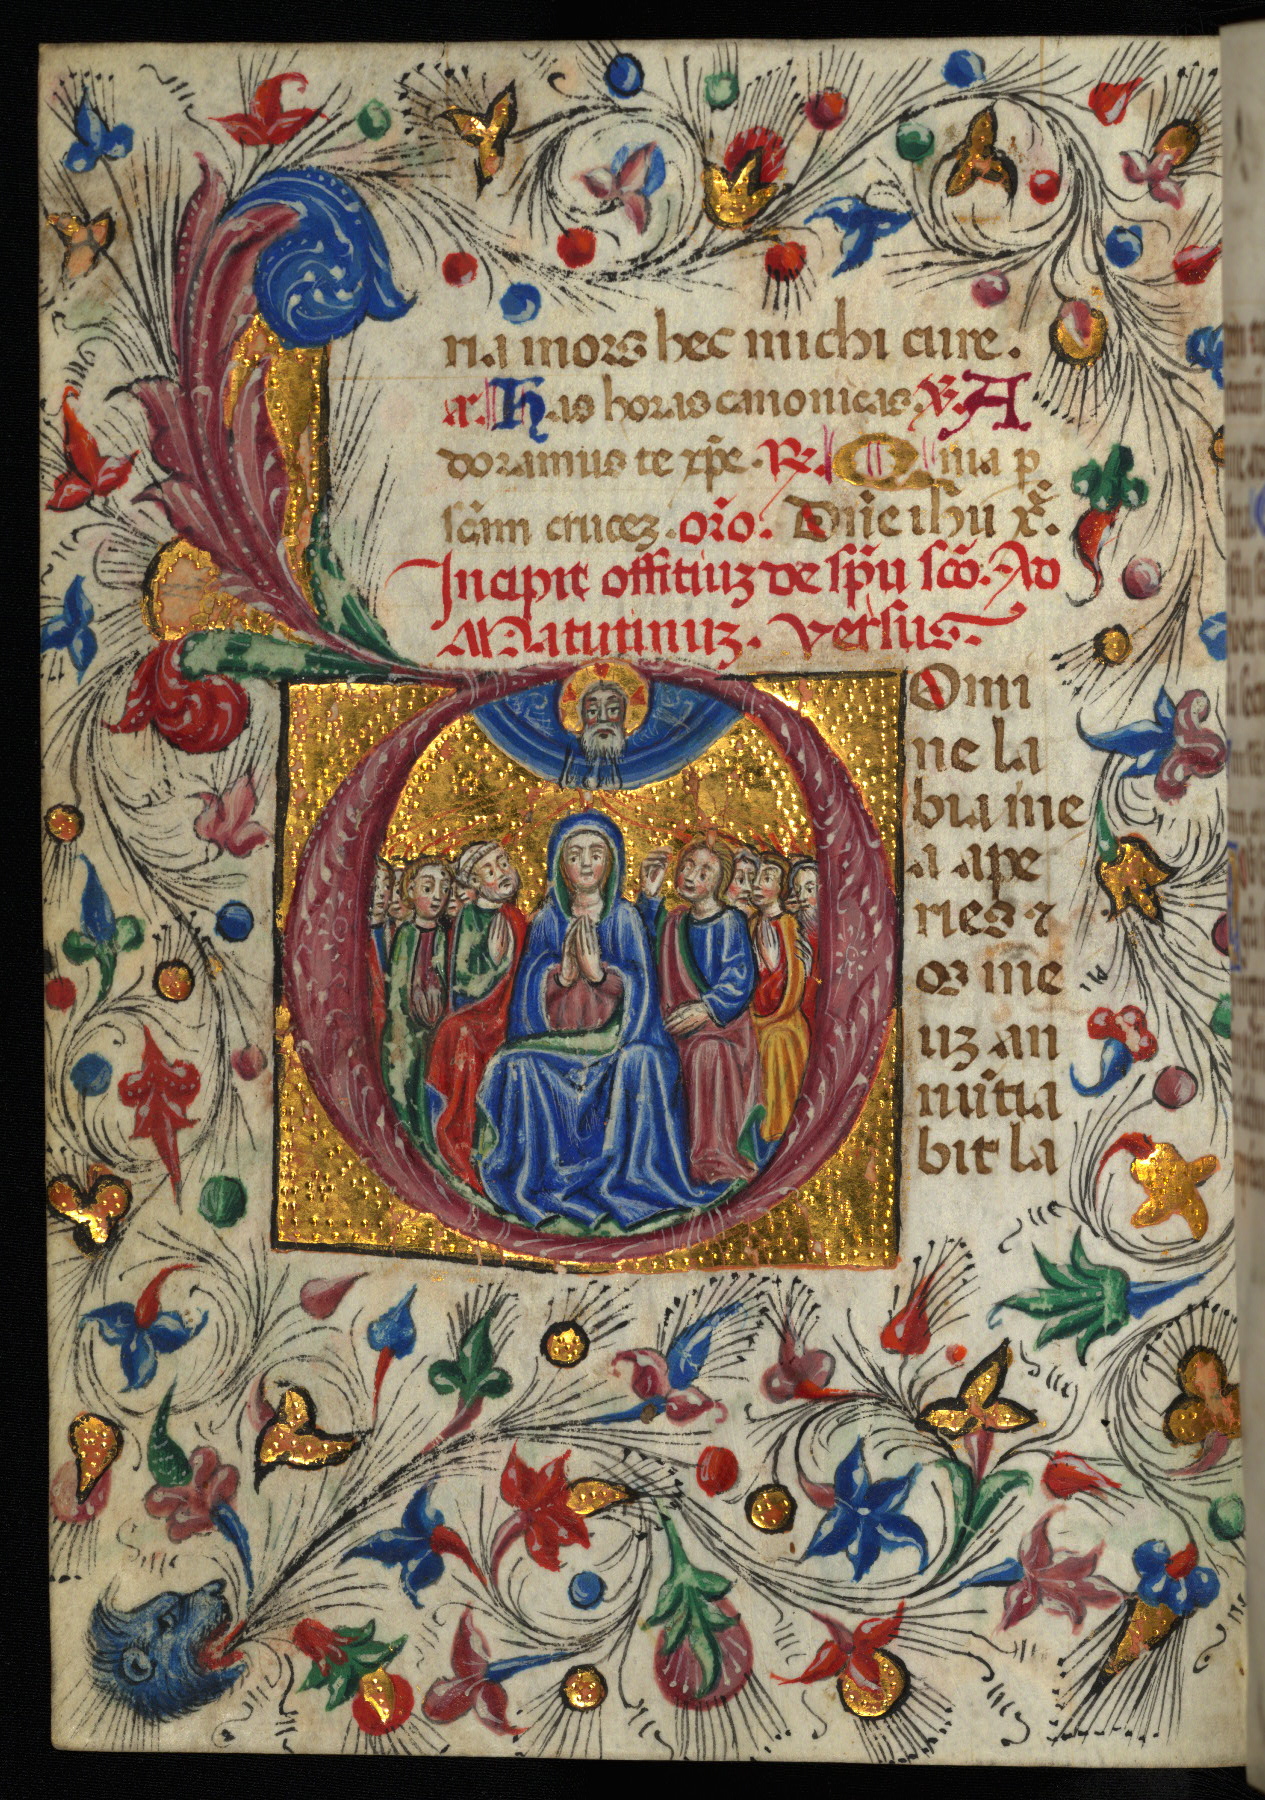 ria mors hec michi cure.
a. Has horas canonicas. V. A
doramus te xp̄e. R. Quia p
sc̄am crucez. or̄o. Dn̄e ih̄u x̄.
Incipit offitiuz de sp̄u sc̄o. Ad
Matutinuz. versus.
Domi
ne la
bia me
a ape
ries ⁊
os me
uz an
nūtia
bit la